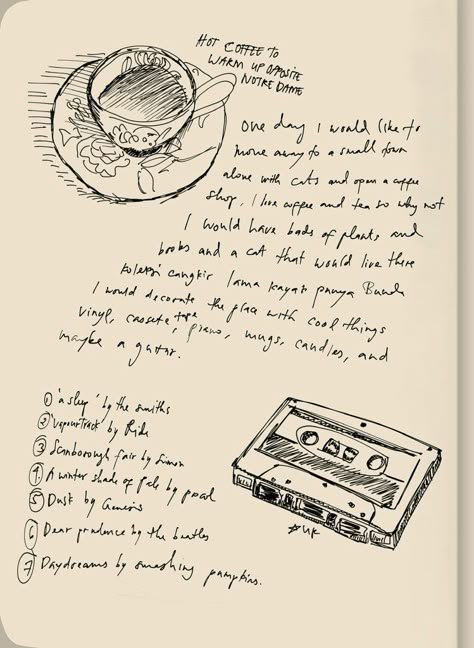 HOT COFFEE TO
WARM UP OPPOSITE
NOTRE DAME
One day I would like to
move away to a small town
alone with cats and open a coffee
shop, I love coffee and tea so why not
I would have bads of plants and
books and a cat that would live there
koleksi cangkir lama kayak punya Bunda
I would decorate the place with cool things
vinyl, cassete tape, piano, mugs, candles, and
maybe a guitar.
① 'asleep' by the smiths
② 'vapour Track' by Ride
③ Scarborough fair by Simon
4 A winter shade of Pale by
⑤ Dusk by Genesis
⑥ Dear prudence by the beatles
⑦ Daydreams by smashing pumpkins.